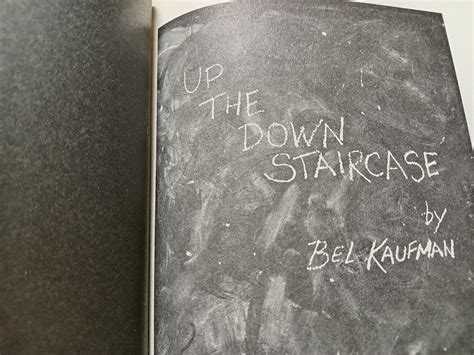 UP
THE
DOWN
STAIRCASE
by
BEL KAUFMAN